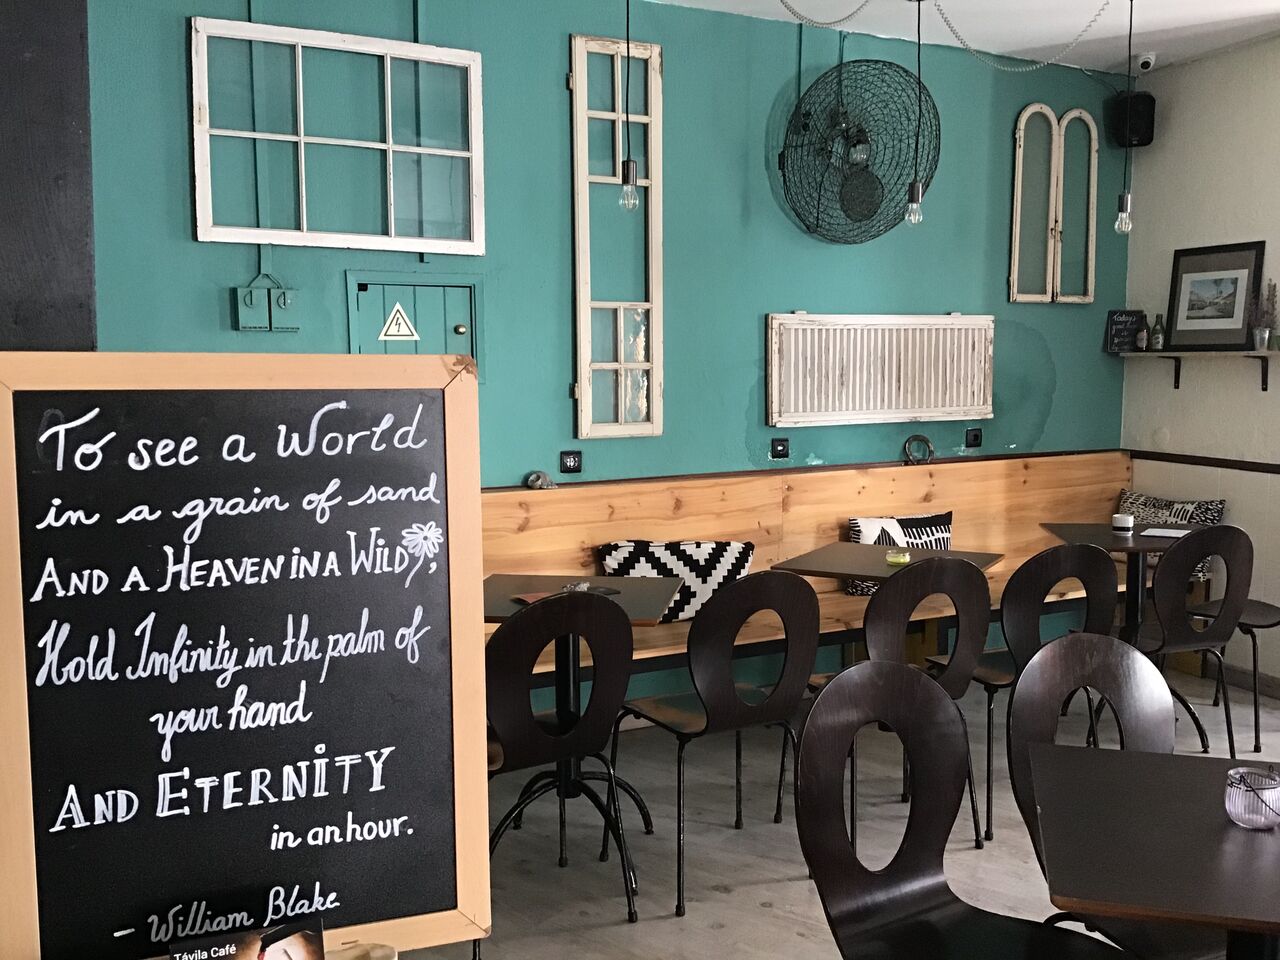 To see a World
in a grain of sand
AND A HEAVEN IN A WILD
Hold Infinity in the palm of
your hand
AND ETERNITY
in an hour.
- William Blake
Távila Café
Today's